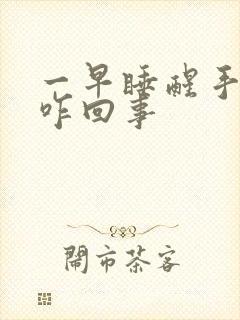 一早睡醒手
咋回事
閙市茶客